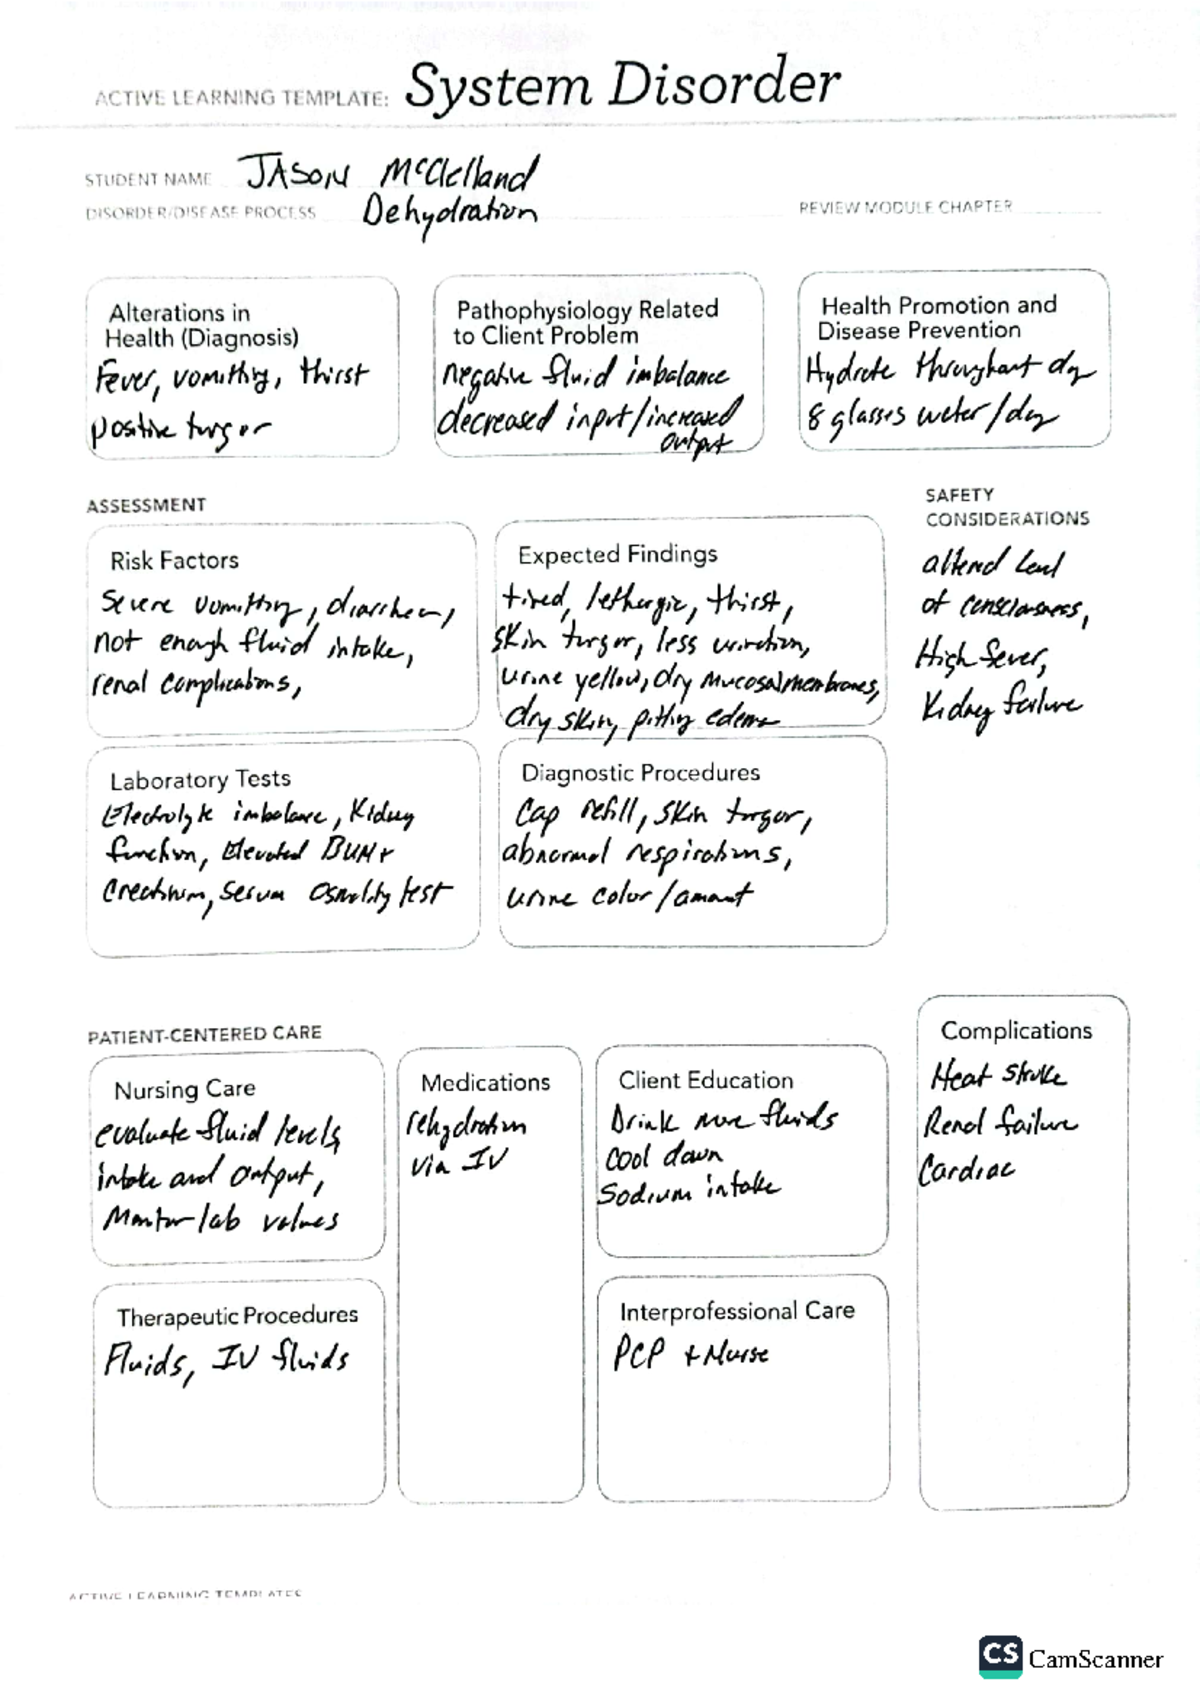 ACTIVE LEARNING TEMPLATE: System Disorder
STUDENT NAME JASON McClelland
DISORDER/DISEASE PROCESS Dehydration
REVIEW MODULE CHAPTER
Alterations in
Health (Diagnosis)
Fever, vomiting, thirst
positive turgor
Pathophysiology Related
to Client Problem
negative fluid imbalance
decreased input/increased
output
Health Promotion and
Disease Prevention
Hydrate throughout day
8 glasses water/day
ASSESSMENT
SAFETY
CONSIDERATIONS
Risk Factors
Severe vomiting, diarrhea,
not enough fluid intake,
renal complications,
Expected Findings
tired, lethargic, thirst,
skin turgor, less urination,
urine yellow, dry mucosal membranes,
dry skin, pitting edema
altered level
of consciousness,
High fever,
Kidney failure
Laboratory Tests
Electrolyte imbalance, Kidney
function, Elevated BUN +
Creatinine, serum osmolality test
Diagnostic Procedures
Cap refill, skin turgor,
abnormal respirations,
urine color/amount
PATIENT-CENTERED CARE
Nursing Care
evaluate fluid levels,
intake and output,
Monitor lab values
Medications
rehydration
via IV
Client Education
Drink more fluids
Cool down
Sodium intake
Complications
Heat stroke
Renal failure
Cardiac
Therapeutic Procedures
Fluids, IV fluids
Interprofessional Care
PCP + Nurse
ACTIVE LEARNING TEMPLATES
CS CamScanner